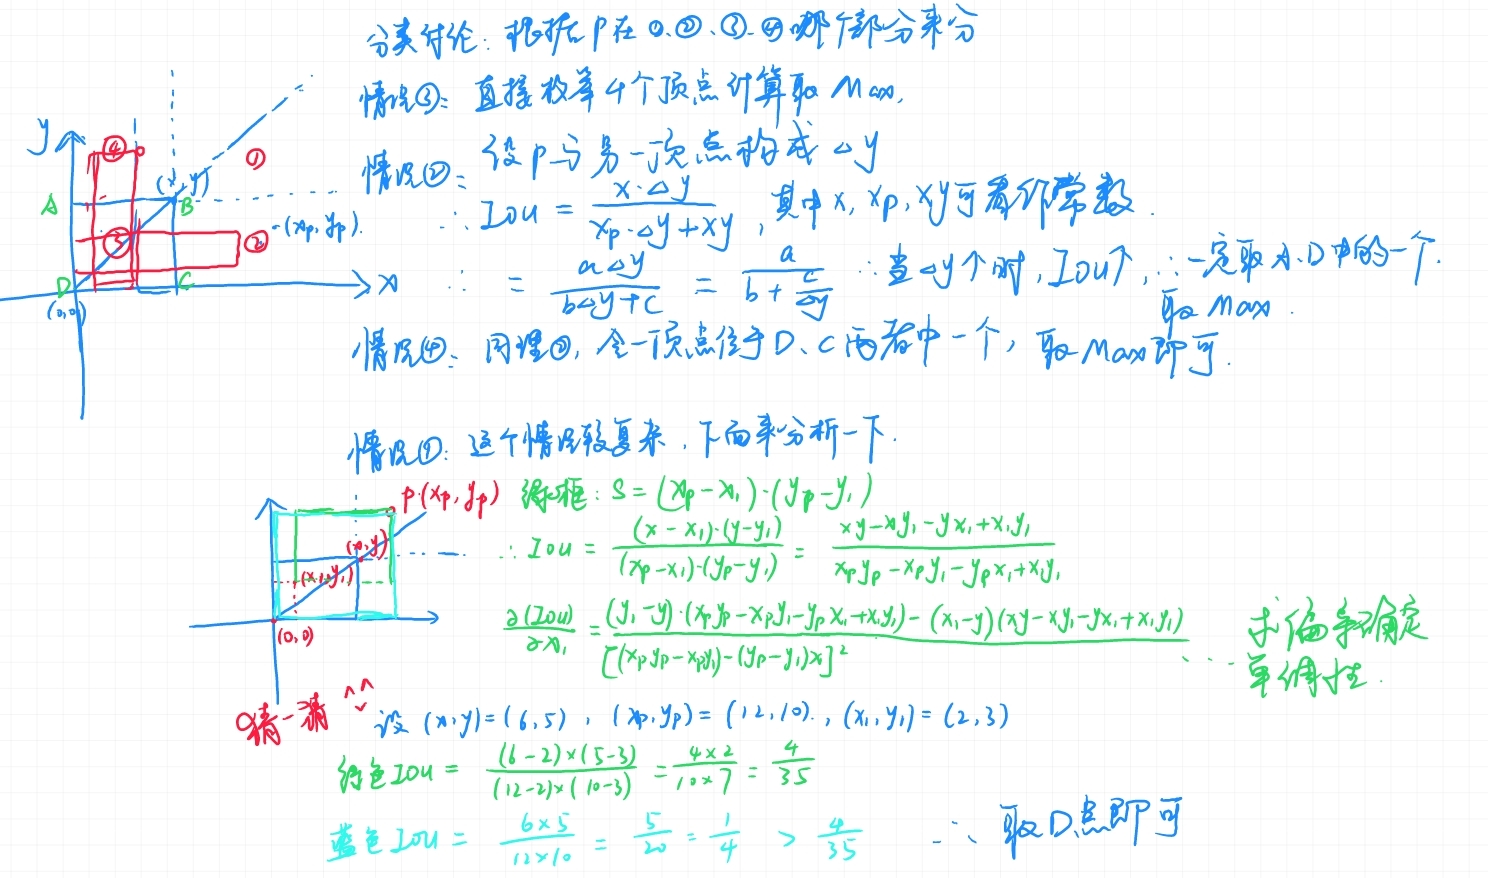 分类讨论: 根据P在①、②、③、④哪个部分来分
情况③: 直接枚举4个顶点计算取Max.
情况②: 设P与另一顶点构成△y
∴ IoU = x·△y / (xp·△y+xy) , 其中x, xp, xy可看作常数.
∴ = a△y / (b△y+c) = a / (b + c/△y) ∴当△y个时, IoU↑, ∴一定取A.D中的一个.
取Max.
情况④: 同理②, 令一顶点位于D、C两者中一个, 取Max即可.
y
④
①
(x, y)
A
B
(xp, yp)
③
②
D
C
x
(0,0)
情况①: 这个情况较复杂, 下面来分析一下.
P·(xp, yp)
绿框: S = (xp-x₁)·(yp-y₁)
(x,y)
(x₁,y₁)
(0,0)
∴ IoU = (x-x₁)·(y-y₁) / (xp-x₁)·(yp-y₁) = (xy-xy₁-yx₁+x₁y₁) / (xpyp-xpy₁-ypx₁+x₁y₁)
∂(IoU)/∂x₁ = (y₁-y)·(xpyp-xpy₁-ypx₁+x₁y₁)-(x₁-y)(xy-xy₁-yx₁+x₁y₁) / [(xpyp-xpy₁)-(yp-y₁)x]²
... 求偏导确定
单调性.
猜一猜 ^^
设 (x,y)=(6,5), (xp,yp)=(12,10), (x₁,y₁)=(2,3)
绿色IOU = (6-2)×(5-3) / (12-2)×(10-3) = 4×2 / 10×7 = 4/35
蓝色IOU = 6×5 / 12×10 = 5/20 = 1/4 > 4/35
∴ 取D点即可